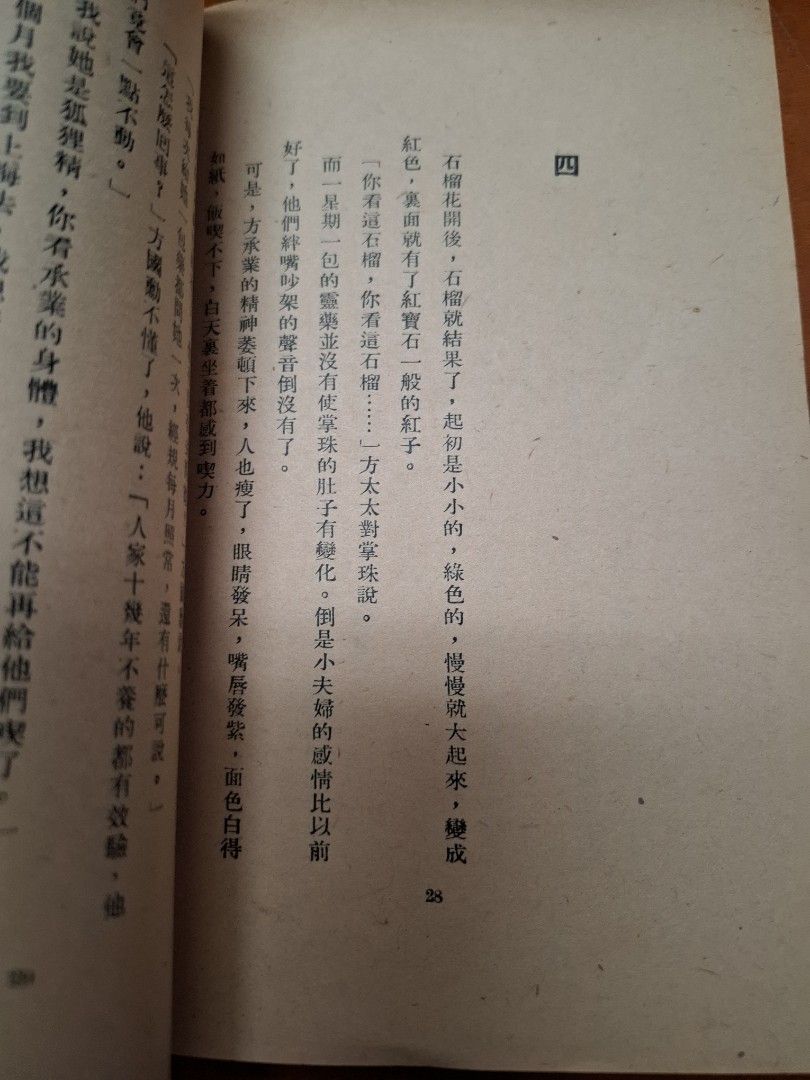 四
石榴花開後，石榴就結果了，起初是小小的，綠色的，慢慢就大起來，變成
紅色，裏面就有了紅寶石一般的紅子。
「你看這石榴，你看這石榴……」方太太對掌珠說。
而一星期一包的靈藥並沒有使掌珠的肚子有變化。倒是小夫婦的感情比以前
好了，他們絆嘴吵架的聲音倒沒有了。
可是，方承業的精神萎頓下來，人也瘦了，眼睛發呆，嘴唇發紫，面色白得
如紙，飯喫不下，白天裏坐着都感到喫力。
28
一次，經期每月照常，還有什麼可說。」
「這怎麼回事？」方國勳不懂了，他說：「人家十幾年不養的都有效驗，他
會一點不動。」
我說她是狐狸精，你看承業的身體，我想這不能再給他們喫了。
個月我要到上海去，